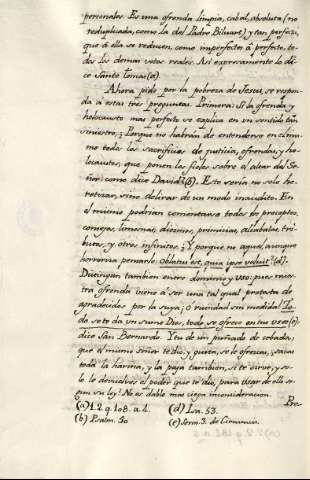 personales. Es una ofrenda limpia, cabal, absoluta (no
reduplicada, como la del Padre Biluart) y tan perfecta,
que á ella se reducen, como imperfectos á perfecto, to-
dos los demas votos reales. Asi expresamente lo di-
ce Santo Tomas (a).
Ahora pido por la pobreza de Jesus, se respon-
da á estas tres preguntas. Primera: Si la ofrenda y
holocausto mas perfecto se explica en un sentido tan
siniestro, ¿Porque no habrán de entenderse en el mis-
mo todos los sacrificios de justicia, ofrendas, y ho-
locaustos, que ponen los fieles sobre el altar del Se-
ñor: como dice David? (b). Esto seria no solo he-
retizar, sino delirar de un modo inaudito. En
el mismo podrian comentarse todos los preceptos,
consejos, limosnas, diezmos, primicias, alcabalas, tri-
butos, y otros infinitos. ¿Y porque no aquel, aunque
horroriza pensarlo: Oblatus est, quia ipse voluit? (d).
Distingan tambien entre dominio y uso: pues nues-
tra ofrenda viene á ser una tal qual protesta de
agradecidos por la suya; ó ruindad sin medida! To-
do se te da un sumo Dios, todo se ofrece en tus usos (e).
dice San Bernardo. Y tu de un puñado de cebada,
que el mismo señor te dio, y quita, se lo ofreces,
toda la harina, y la paja tambien, si te sirve, y so-
lo le devuelves el poder que te dio, para usar de ella se-
gun su ley! No es dable mas ciega inconsideracion.
Pre-
(a) 1.2. q. 108. a. 4.
(d) Isa. 53.
(b) Psalm. 50
(e) Serm. 3. de Circuncis.